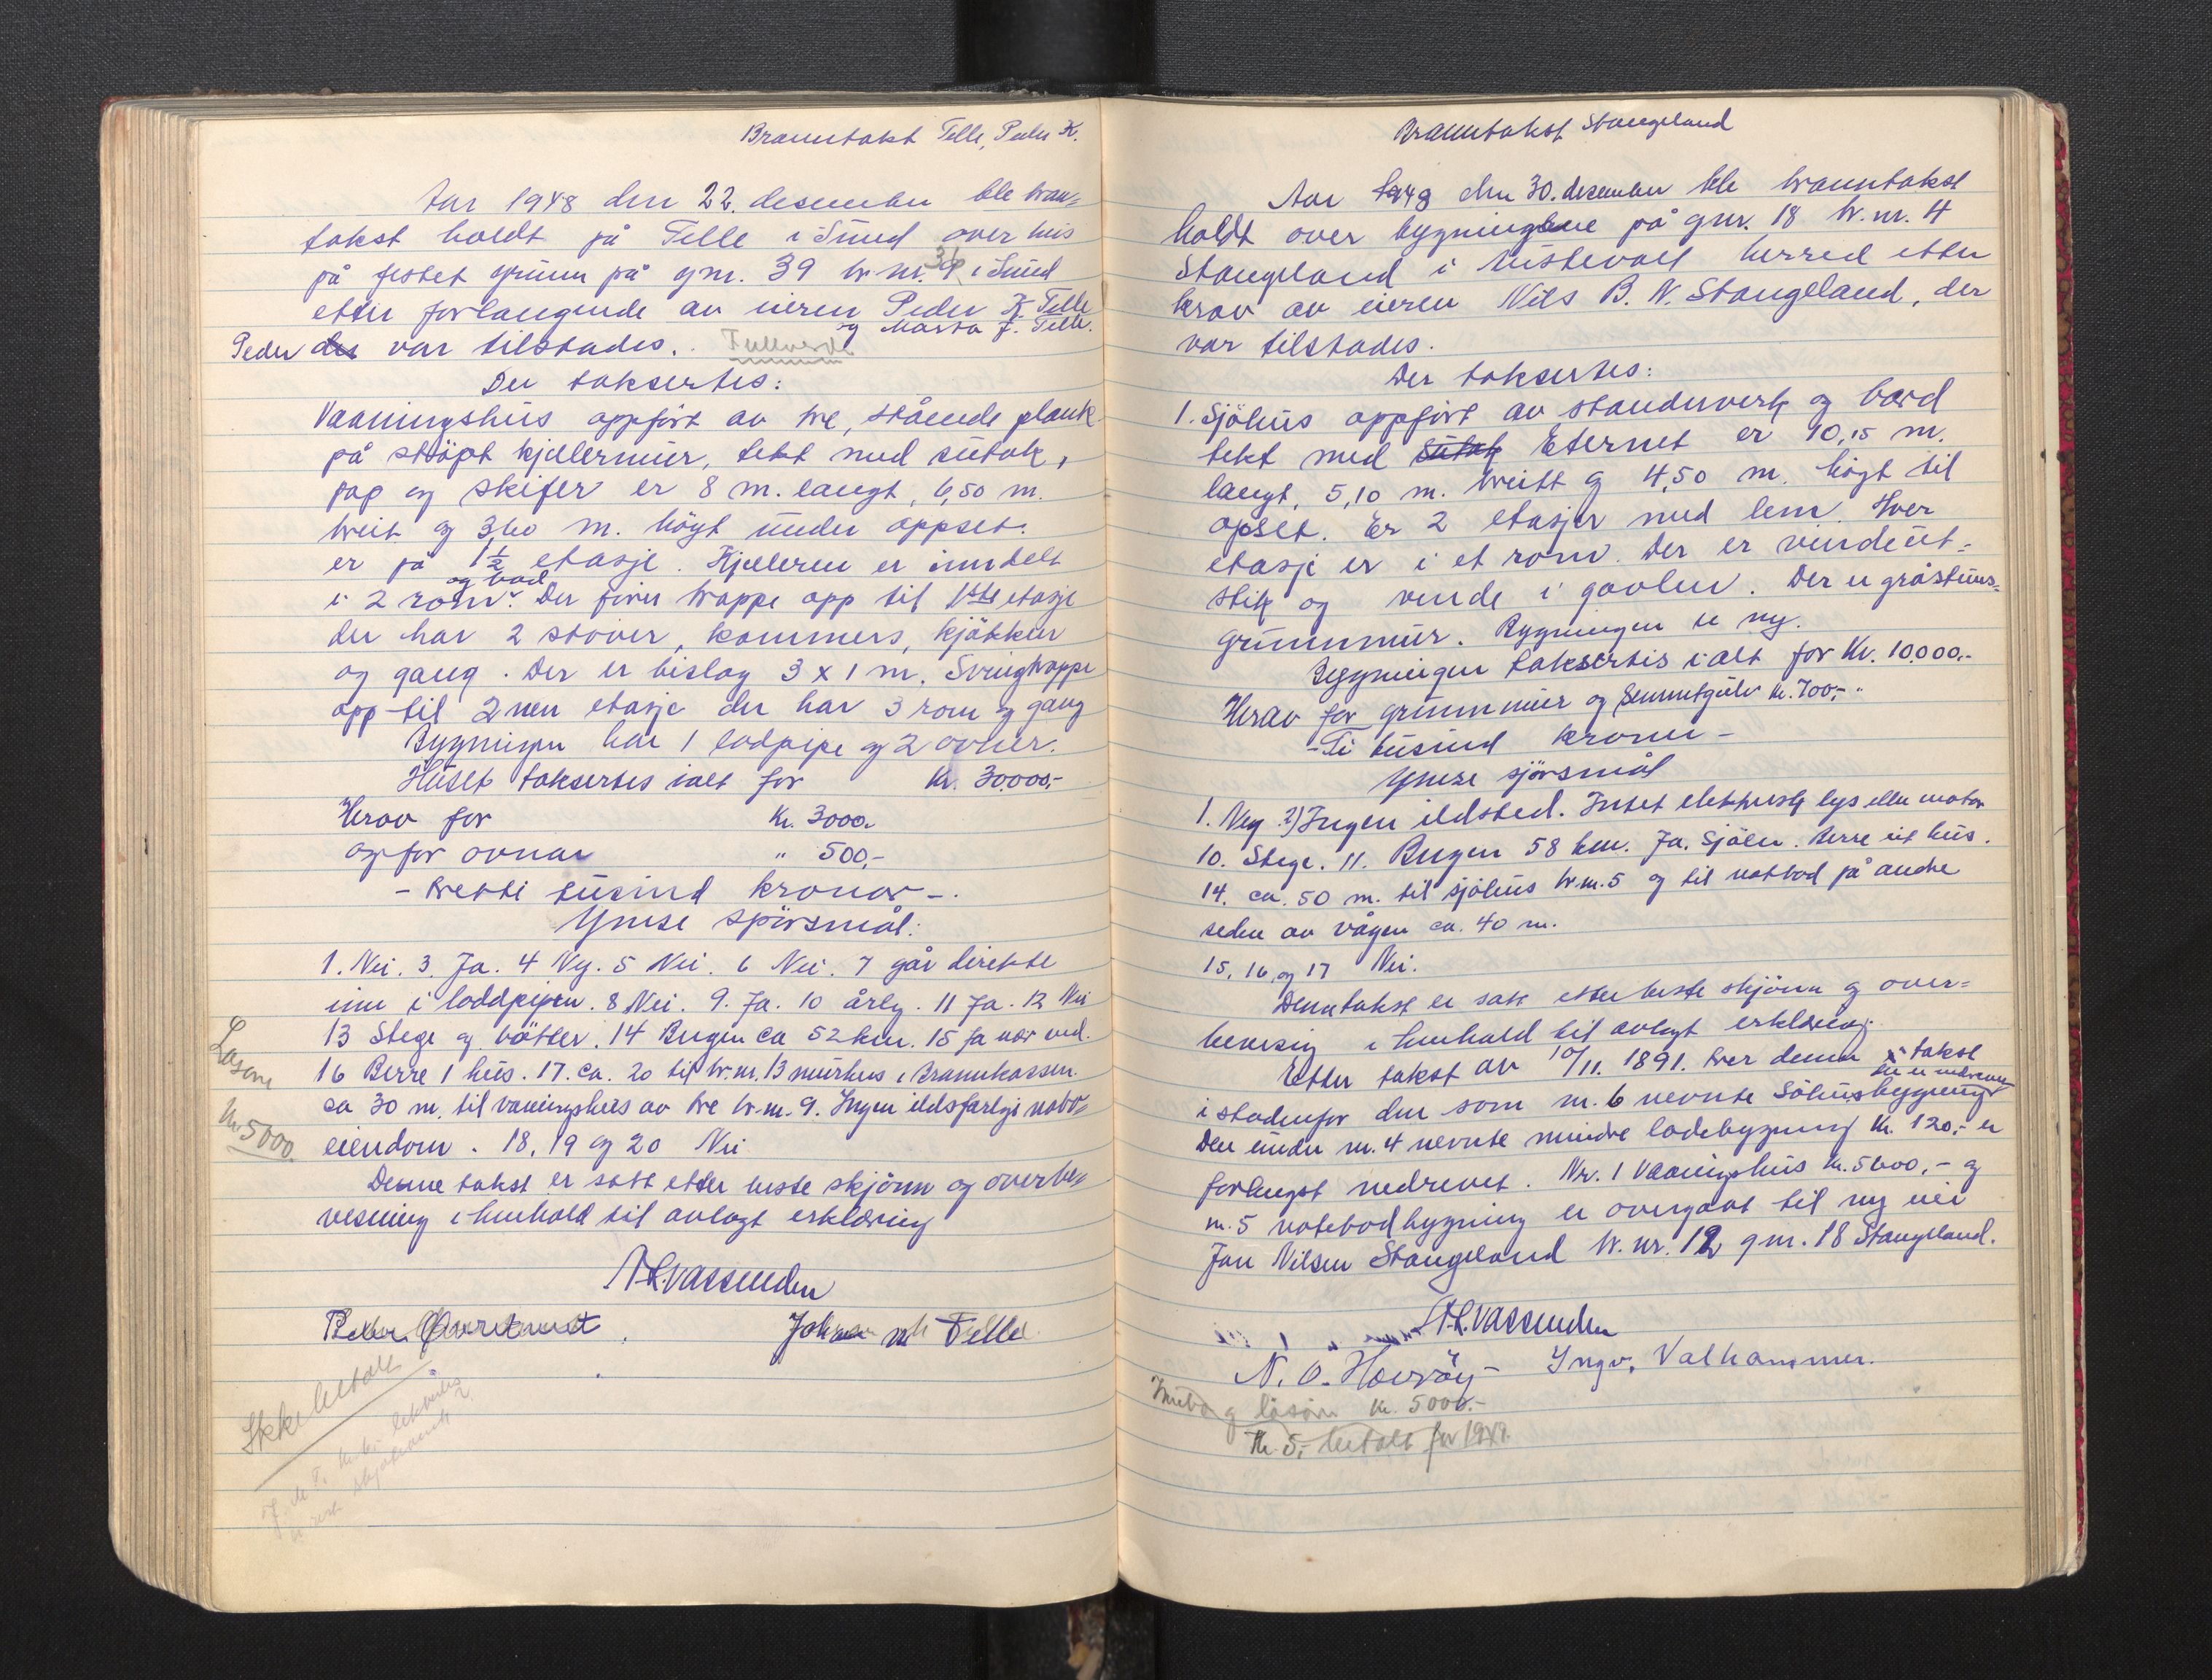 Branntakst Telle, Peder K.
Aar 1948 den 22. desember ble bran=
takst holdt på Telle i Sund over hus
på festet grunn på gnr. 39 br. nr. 36 i Sund
etter forlangende av eieren Peder K. Telle
og Marta J. Telle.
Peder der var tilstades. Fullverdi
Der taksertes:
Vaaningshus oppført av tre, stående plank
på støpt kjellermur, tekt med sutak,
pap og skifer er 8 m. langt, 6,50 m.
breit og 3,60 m. høgt under oppset.
er på 1½ etasje. Kjelleren er inndelt
i 2 rom og bad. Der fører trappe opp til 1ste etasje
der har 2 stover, kammers, kjøkken
og gang. Der er bislag 3 x 1 m. Svingtrappe
opp til 2nen etasje der har 3 rom og gang
Bygningen har 1 lodpipe og 2 ovner.
Huset taksertes ialt for Kr. 30000,-
Herav for Kr. 3000.
og for ovnar " 500,-
- tretti tusind kronar -.
Ymse spørsmål:
1. Nei. 3. Ja. 4 Ny. 5 Nei. 6 Nei. 7 går direkte
inn i loddpipen. 8 Nei. 9. Ja. 10 årlg. 11 Ja. 12 Nei
13 Stege og bøtter. 14 Bergen ca 52 km. 15 Ja nær ved.
16 Berre 1 hus. 17. ca. 20 til br. nr. 13 murhus i Brannkassen.
ca 30 m. til vaaningshus av tre br. nr. 9. Ingen ildsfarlge nabo=
eiendom. 18, 19 og 20 Nei
Løsøre
Kr 5000
Denne takst er satt etter beste skjønn og overbe=
visning i henhold til avlagt erklæring
N.L. Vassenden
Peder Johan M. Telle
Ikke betalt
Branntakst Stangeland
Aar 1948 den 30. desember ble branntakst
holdt over bygningene på gnr. 18 br. nr. 4
Stangeland i Austevoll herred etter
krav av eieren Nils B. N. Stangeland, der
var tilstades.
Der taksertes:
1. Sjøhus oppført av standerverk og bord
tekt med sutak Eternet er 10,15 m.
langt, 5,10 m. breitt og 4,50 m. høgt til
opset. Er 2 etasjer med lem. Hver
etasje er i et rom. Der er vindeut=
stik og vinde i gavlen. Der er gråsteins=
grunnmur. Bygningen er ny.
Bygningen taksertes i alt for Kr. 10.000.-
Herav for grunnmur og sementgulv kr. 700,-
- Ti tusind kroner -
Ymse spørsmål
1. Ny 2) Ingen ildsted. Intet elektrisk lys eller motor
10. Stege. 11. Bergen 58 km. Ja. Sjøen. Berre eit hus.
14. ca. 50 m. til sjøhus br. nr. 5 og til notbod på andre
siden av vågen ca. 40 m.
15, 16 og 17 Nei.
Denne takst er satt etter beste skjønn og over=
bevisning i henhold til avlagt erklæring.
Etter takst av 10/11. 1891. trer denne takst
i stadenfor den som nr. 6 nevnte Søhusbygning
der er nedreven
Den under nr. 4 nevnte mindre ladebygning Kr. 120,- er
forlengst nedrevet. Nr. 1 Vaaningshus kr. 5600,- og
nr. 5 notebodbygning er overgaat til ny eier
Jan Nilsen Stangeland br. nr. 12 gnr. 18 Stangeland.
N.L. Vassenden
N. O. Horsøy - Ingv. Valhammer.
Innbo og løsøre kr. 5000.-
Kr. 5,- betalt for 1949.